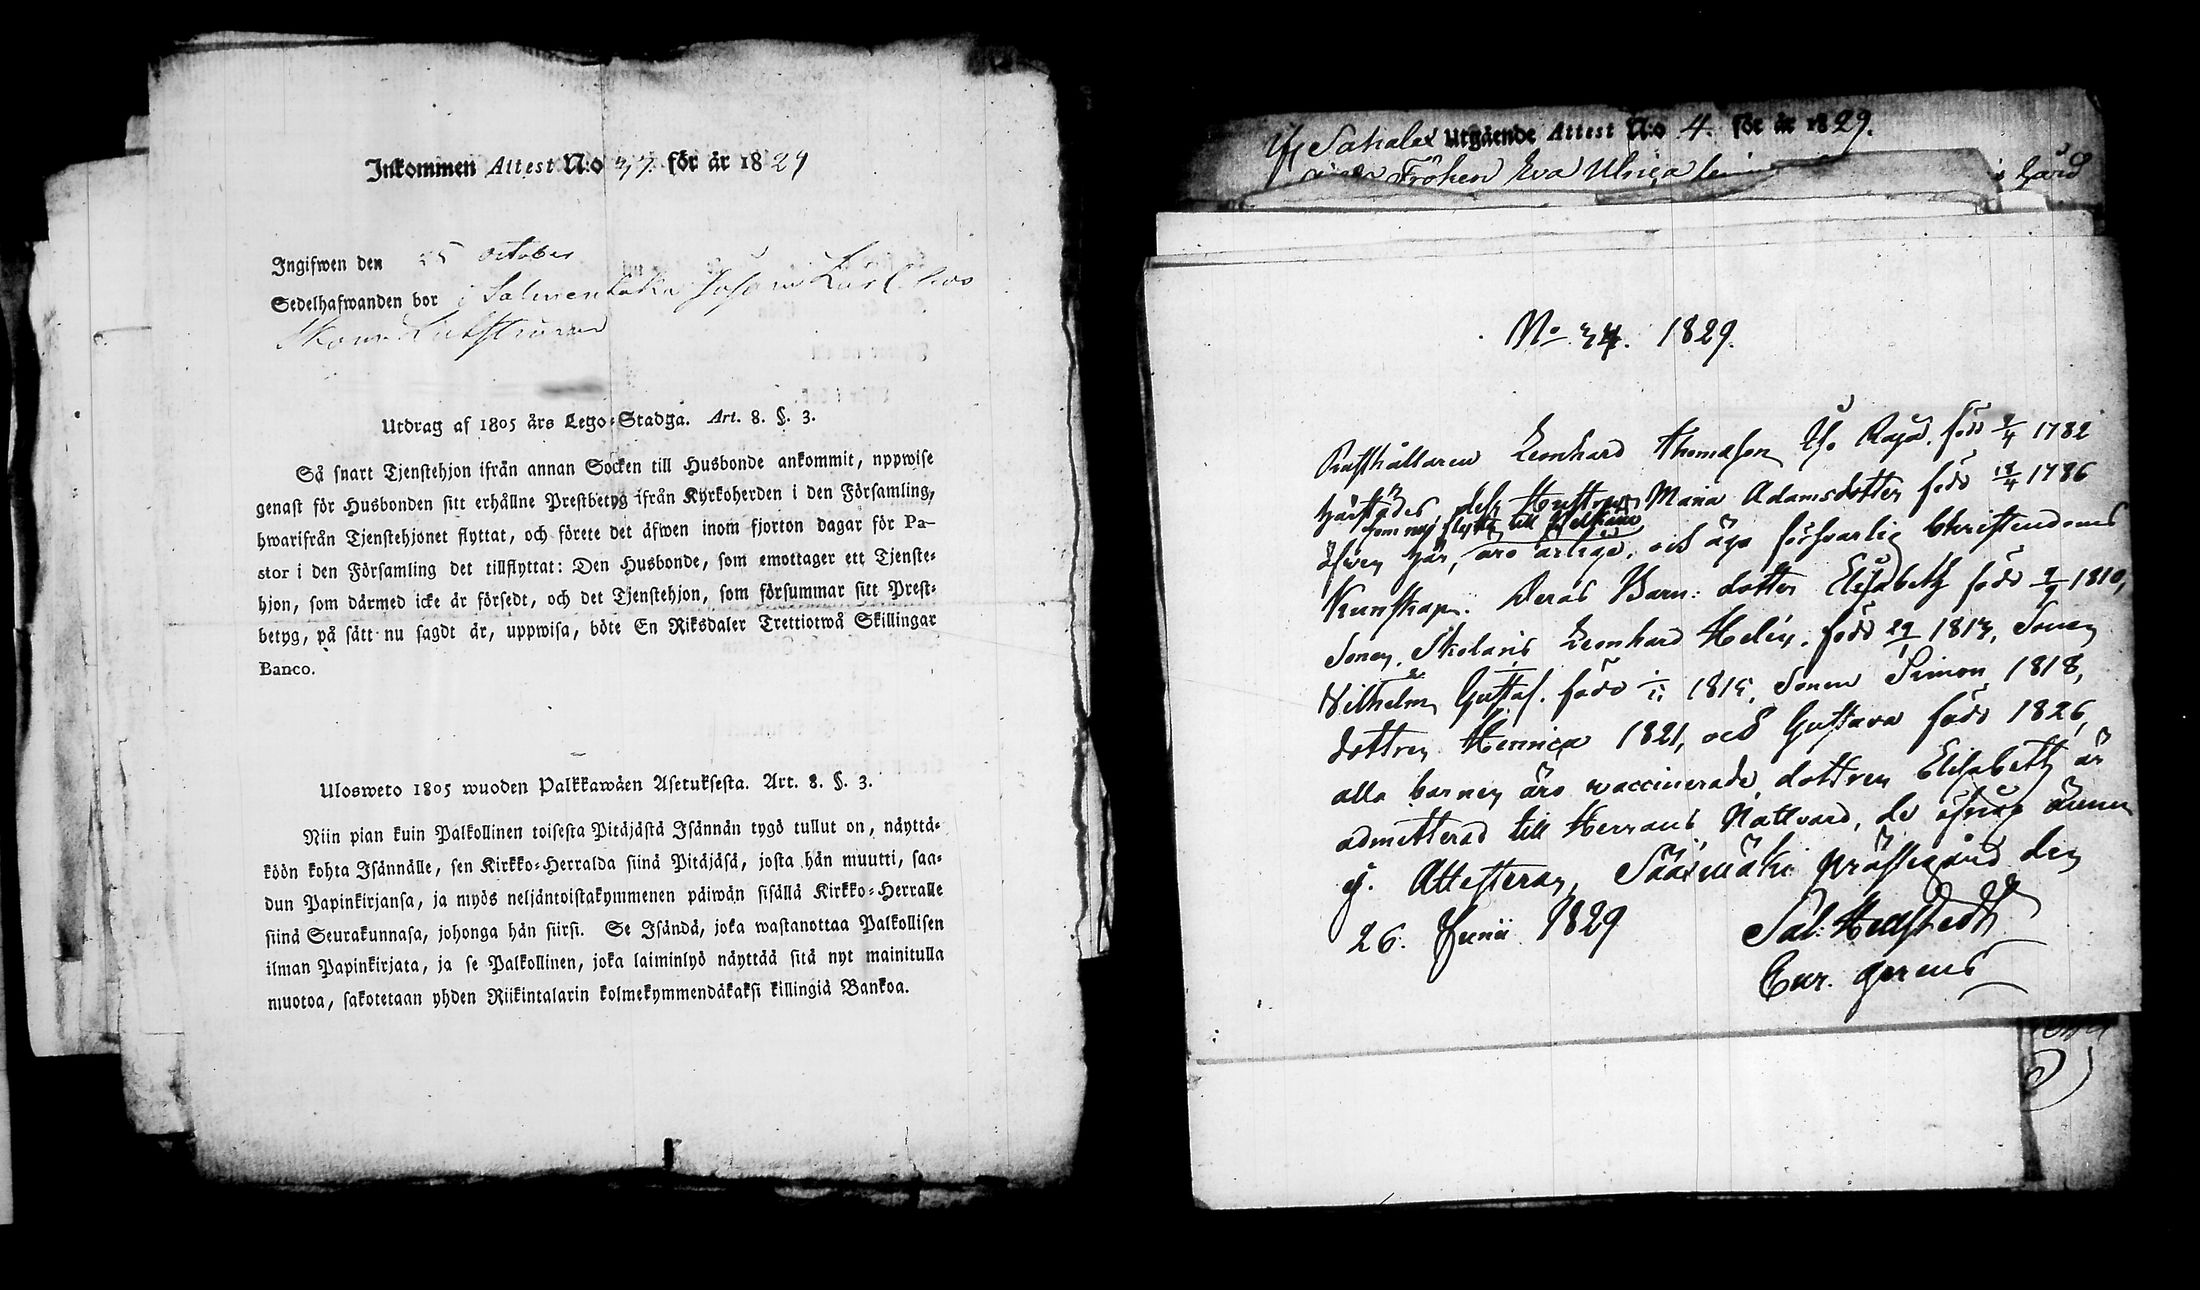 Inkommen Attest N:o 37. för år 1829
Ingifwen den 25 October
Sedelhafwanden bor i Salmentaka
Utdrag af 1805 års Lego-Stadga. Art. 8. §. 3.
Så snart Tjenstehjon ifrån annan Socken till Husbonde ankommit, uppwise
genast för Husbonden sitt erhållne Prestbetyg ifrån Kyrkoherden i den Församling,
hwarifrån Tjenstehjonet flyttat, och förete det äfwen inom fjorton dagar för Pa-
stor i den Församling det tillflyttat: Den Husbonde, som emottager ett Tjenste-
hjon, som därmed icke är försedt, och det Tjenstehjon, som försummar sitt Prest-
betyg, på sätt nu sagdt är, uppwisa, böte En Riksdaler Trettiotwå Skillingar
Banco.
Ulosweto 1805 wuoden Palkkawäen Asetuksesta. Art. 8. §. 3.
Niin pian kuin Palkollinen toisesta Pitäjästä Isännän tygö tullut on, näyttä-
köön kohta Isännälle, sen Kirkko-Herralda siinä Pitäjäsä, josta hän muutti, saa-
dun Papinkirjansa, ja myös neljäntoistakymmenen päiwän sisällä Kirkko-Herralle
siinä Seurakunnasa, johonga hän siirsi. Se Isändä, joka wastanottaa Palkollisen
ilman Papinkirjata, ja se Palkollinen, joka laiminlyö näyttää sitä nyt mainitulla
muotoa, sakotetaan yhden Riikintalarin kolmekymmendäkaksi killingiä Bankoa.
Utgående Attest N:o 4. för år 1829.
Fröken Eva Ulrica
gård
No 34. 1829.
Rusthållaren Leonhard Thomasson född 1782
härstädes, dess Hustru Maria Adamsdotter född 18/4 1786
som nu flytta till
äfven här, äro ärliga, och äga försvarlig Christendoms
Kunskap. Deras Barn: dotter Elisabeth född 1810,
Sonen, Skolaris Leonhard Helin, född 29/1 1813, Sonen
Vilhelm Gustaf. född 1815, Sonen Simon 1818,
dottren Henrica 1821, och Gustava född 1826,
alla barnen äro vaccinerade, dottren Elisabeth är
admitterad till Herrans Nattvard, de öfriga ännu
ej. Attesterar, Sääxmäki prästegård den
26. Junii 1829
Sal: Hedstedt
Cur. gerens